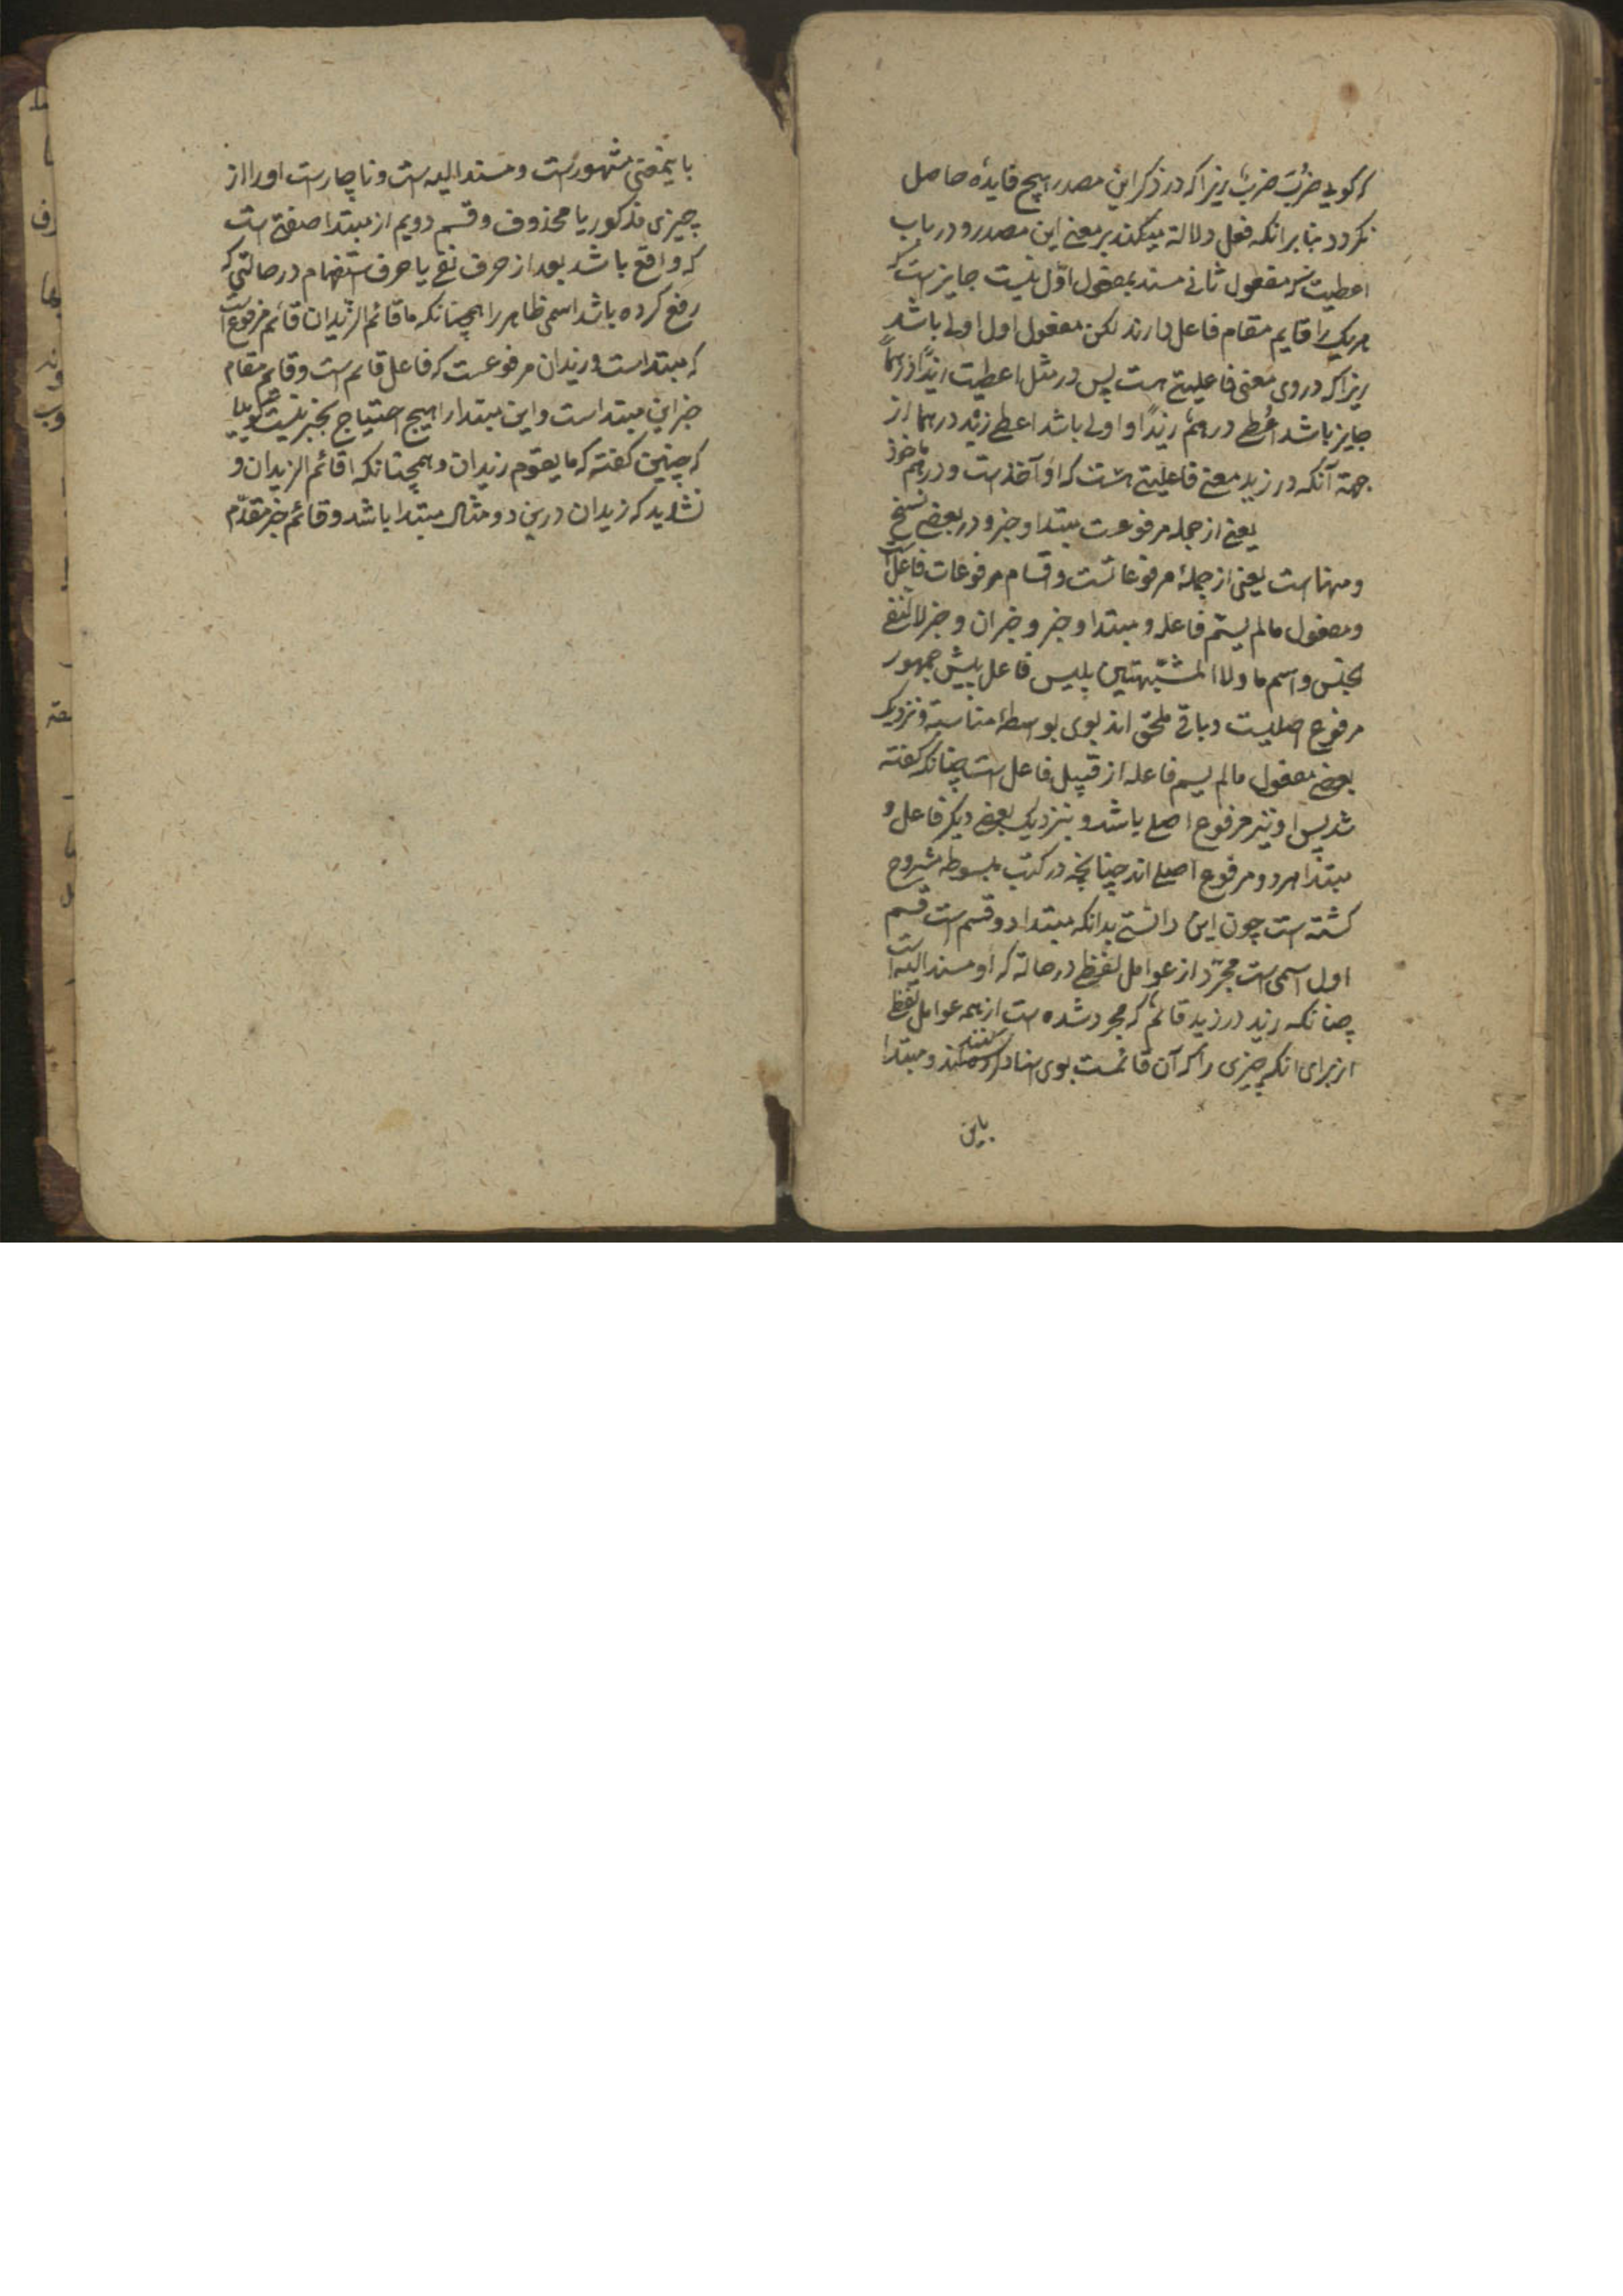 که گویی ضُرِبَ ضَربٌ زیرا که در ذکر این مصدر هیچ فایده حاصل
نکردد بنابر انکه فعل دلالة میکند بر معنی این مصدر و در باب
اعطیت که مفعول ثانی مسند بمفعول اول نیست جایز است که
هر یک را قایم مقام فاعل دارند لکن مفعول اول اولی باشد
زیرا که در وی معنی فاعلیتی هست پس در مثل اعطیت زیدًا درهمًا
جایز باشد اُعطی درهمٌ زیدًا و اولی باشد اعطی زیدٌ درهما از
جهة آنکه در زید معنی فاعلیتی هست که او آخذ است و درهم ماخوذ
یعنی از جمله مرفوعت مبتدا و خبر و در بعضی نسخ
و منها است یعنی از جملهٔ مرفوعاتست و اقسام مرفوعات فاعل است
و مفعول مالم یسمّ فاعله و مبتدا و خبر و خبر ان و خبر لا لنفی
لجنس و اسم ما ولا المشبّهتین بلیس فاعل پیش جمهور
مرفوع اصلیست و باقی ملحق اند بوی بواسطهٔ مناسبة و نزدیک
بعضی مفعول مالم یسم فاعله از قبیل فاعل است چنانکه گفته
شد پس او نیز مرفوع اصلی باشد و بنزدیک بعضی دیگر فاعل و
مبتدا هر دو مرفوع اصلی اند چنانچه در کتب مبسوطه مشروح
گشته است چون این دانستی بدانکه مبتدا دو قسم است قسم
اول اسمی است مجرّد از عوامل لفظی در حالة که او مسند الیه است
چنانکه زید در زید قائمٌ که مجرد شده است از همه عوامل لفظی
از برای انکه چیزی را که آن قائمست بوی اسناد کنند و مبتدا
باین
باینمعنی مشهور است و مسند الیه است و ناچار است او را از
چیزی مذکور یا محذوف و قسم دویم از مبتدا صفتی است
که واقع باشد بعد از حرف نفی یا حرف استفهام در حالتی که
رفع کرده باشد اسمی ظاهر را همچنانکه ما قائم الزیدان قائم مرفوع است
که مبتدا است و زیدان مرفوعست که فاعل قایم است و قایم مقام
خبر این مبتدا است و این مبتدا را هیچ احتیاج بخبر نیست همانا گوییا
که چنین گفته که ما یقوم زیدان و همچنانکه اقائم الزیدان و
نشاید که زیدان درین دو مثال مبتدا باشد و قائم خبر مقدّم